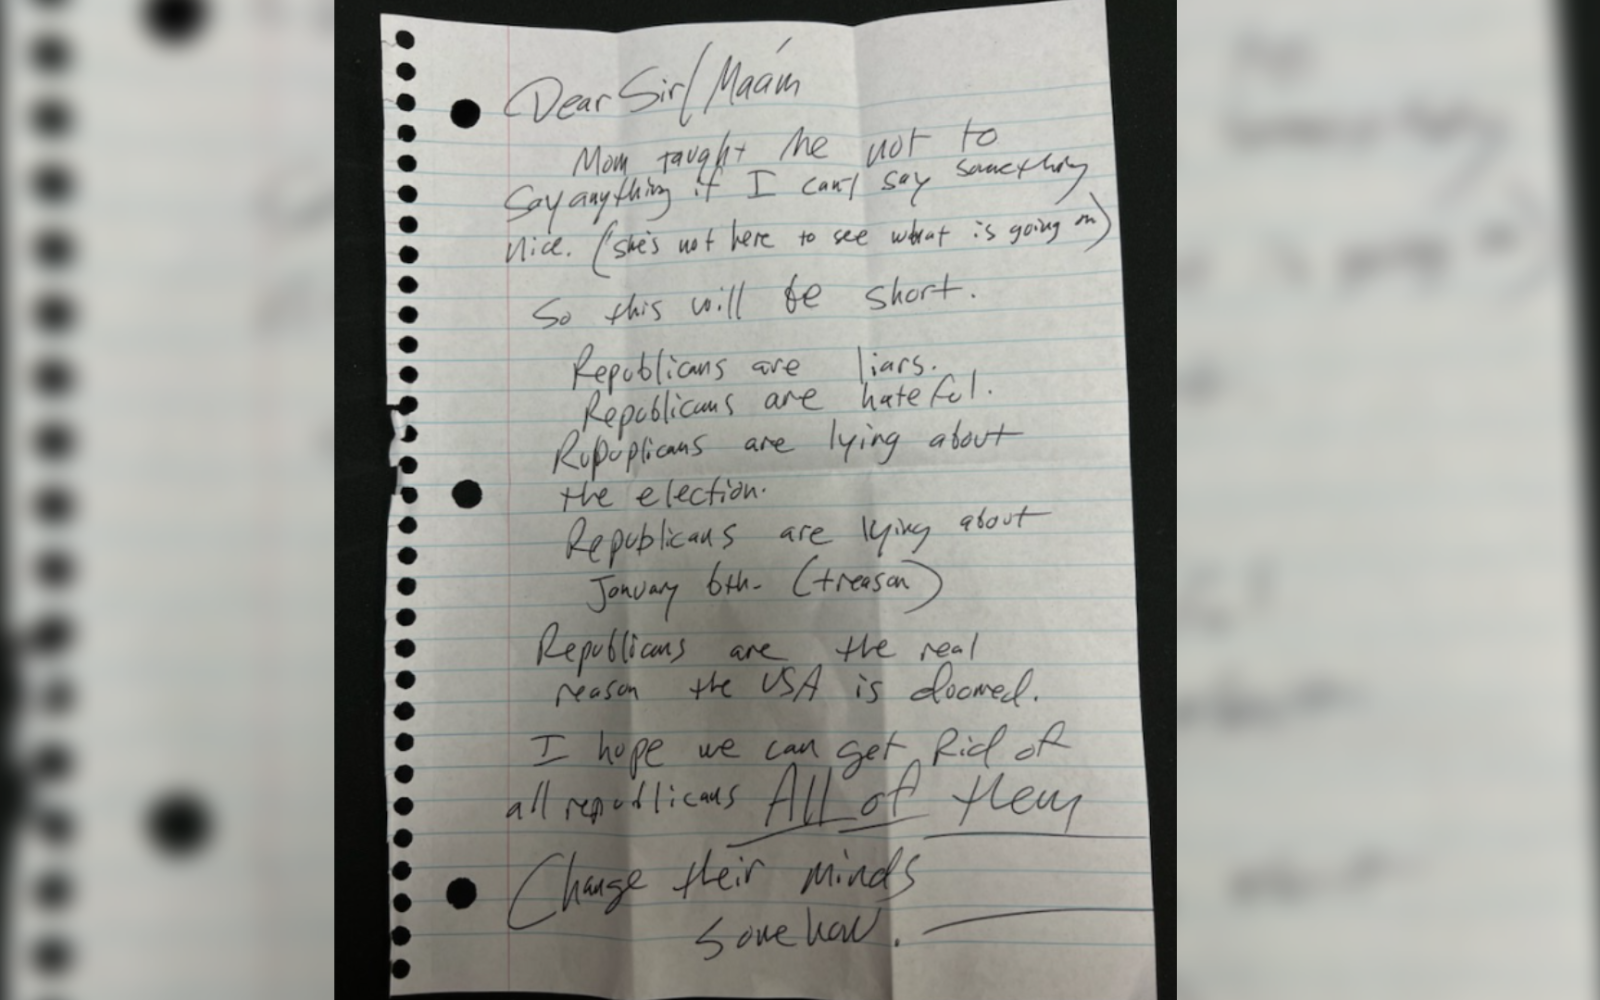 Dear Sir/Ma'am
Mom taught me not to
Say anything if I can't say something
nice. (she's not here to see what is going on)
So this will be short.
Republicans are liars.
Republicans are hateful.
Rupuplicans are lying about
the election.
Republicans are lying about
January 6th. (treason)
Republicans are the real
reason the USA is doomed.
I hope we can get Rid of
all republicans All of them
Change their minds
somehow.